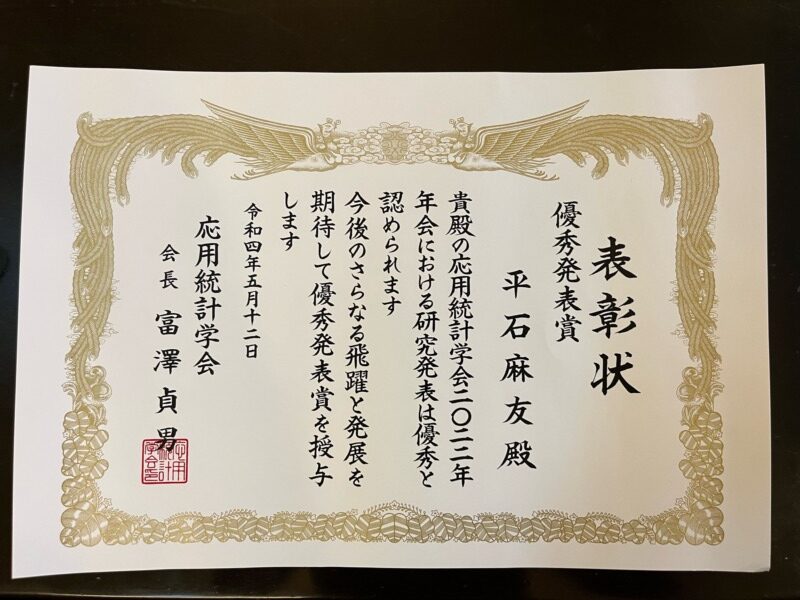 表彰状
優秀発表賞
平石麻友殿
貴殿の応用統計学会二〇二二年
年会における研究発表は優秀と
認められます
今後のさらなる飛躍と発展を
期待して優秀発表賞を授与
します
令和四年五月十二日
応用統計学会
会長 富澤貞男
応用
統計
学会印